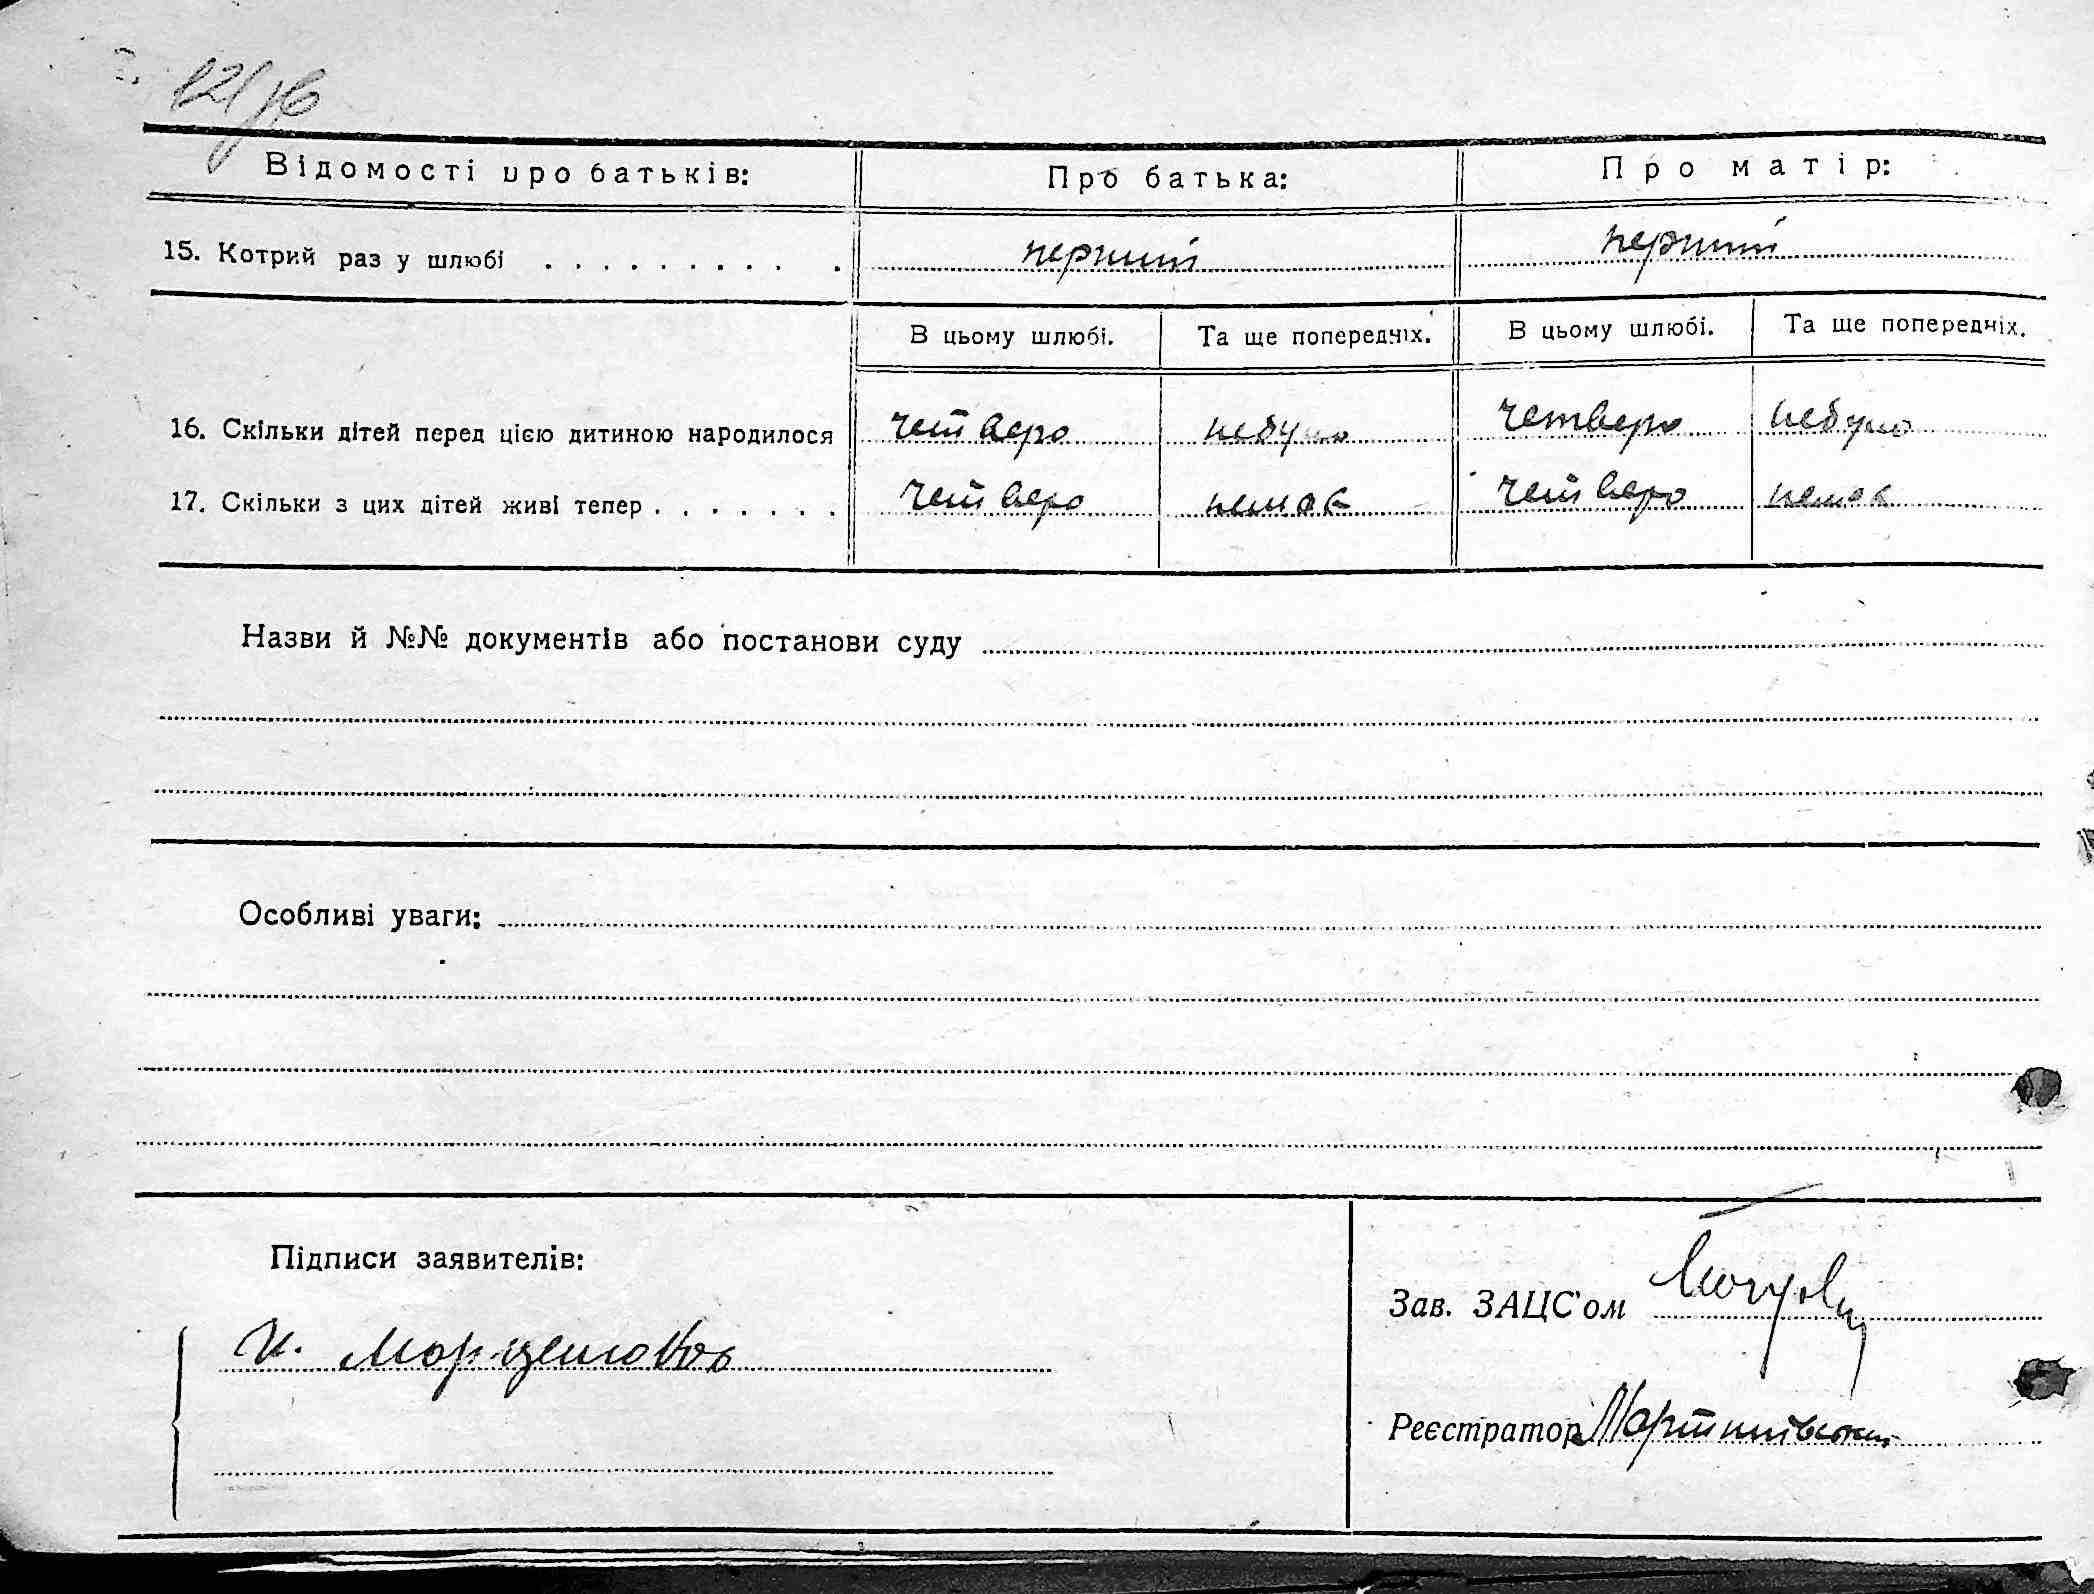 Відомості про батьків: Про батька: Про матір:
15. Котрий раз у шлюбі . . . . . . . . . . перший перший
В цьому шлюбі. Та ще попередніх. В цьому шлюбі. Та ще попередніх.
16. Скільки дітей перед цією дитиною народилося четверо небуло четверо небуло
17. Скільки з цих дітей живі тепер . . . . . . . четверо немає четверо немає
Назви й №№ документів або постанови суду
Особливі уваги:
Підписи заявителів:
Зав. ЗАЦС'ом
И.
Реєстратор